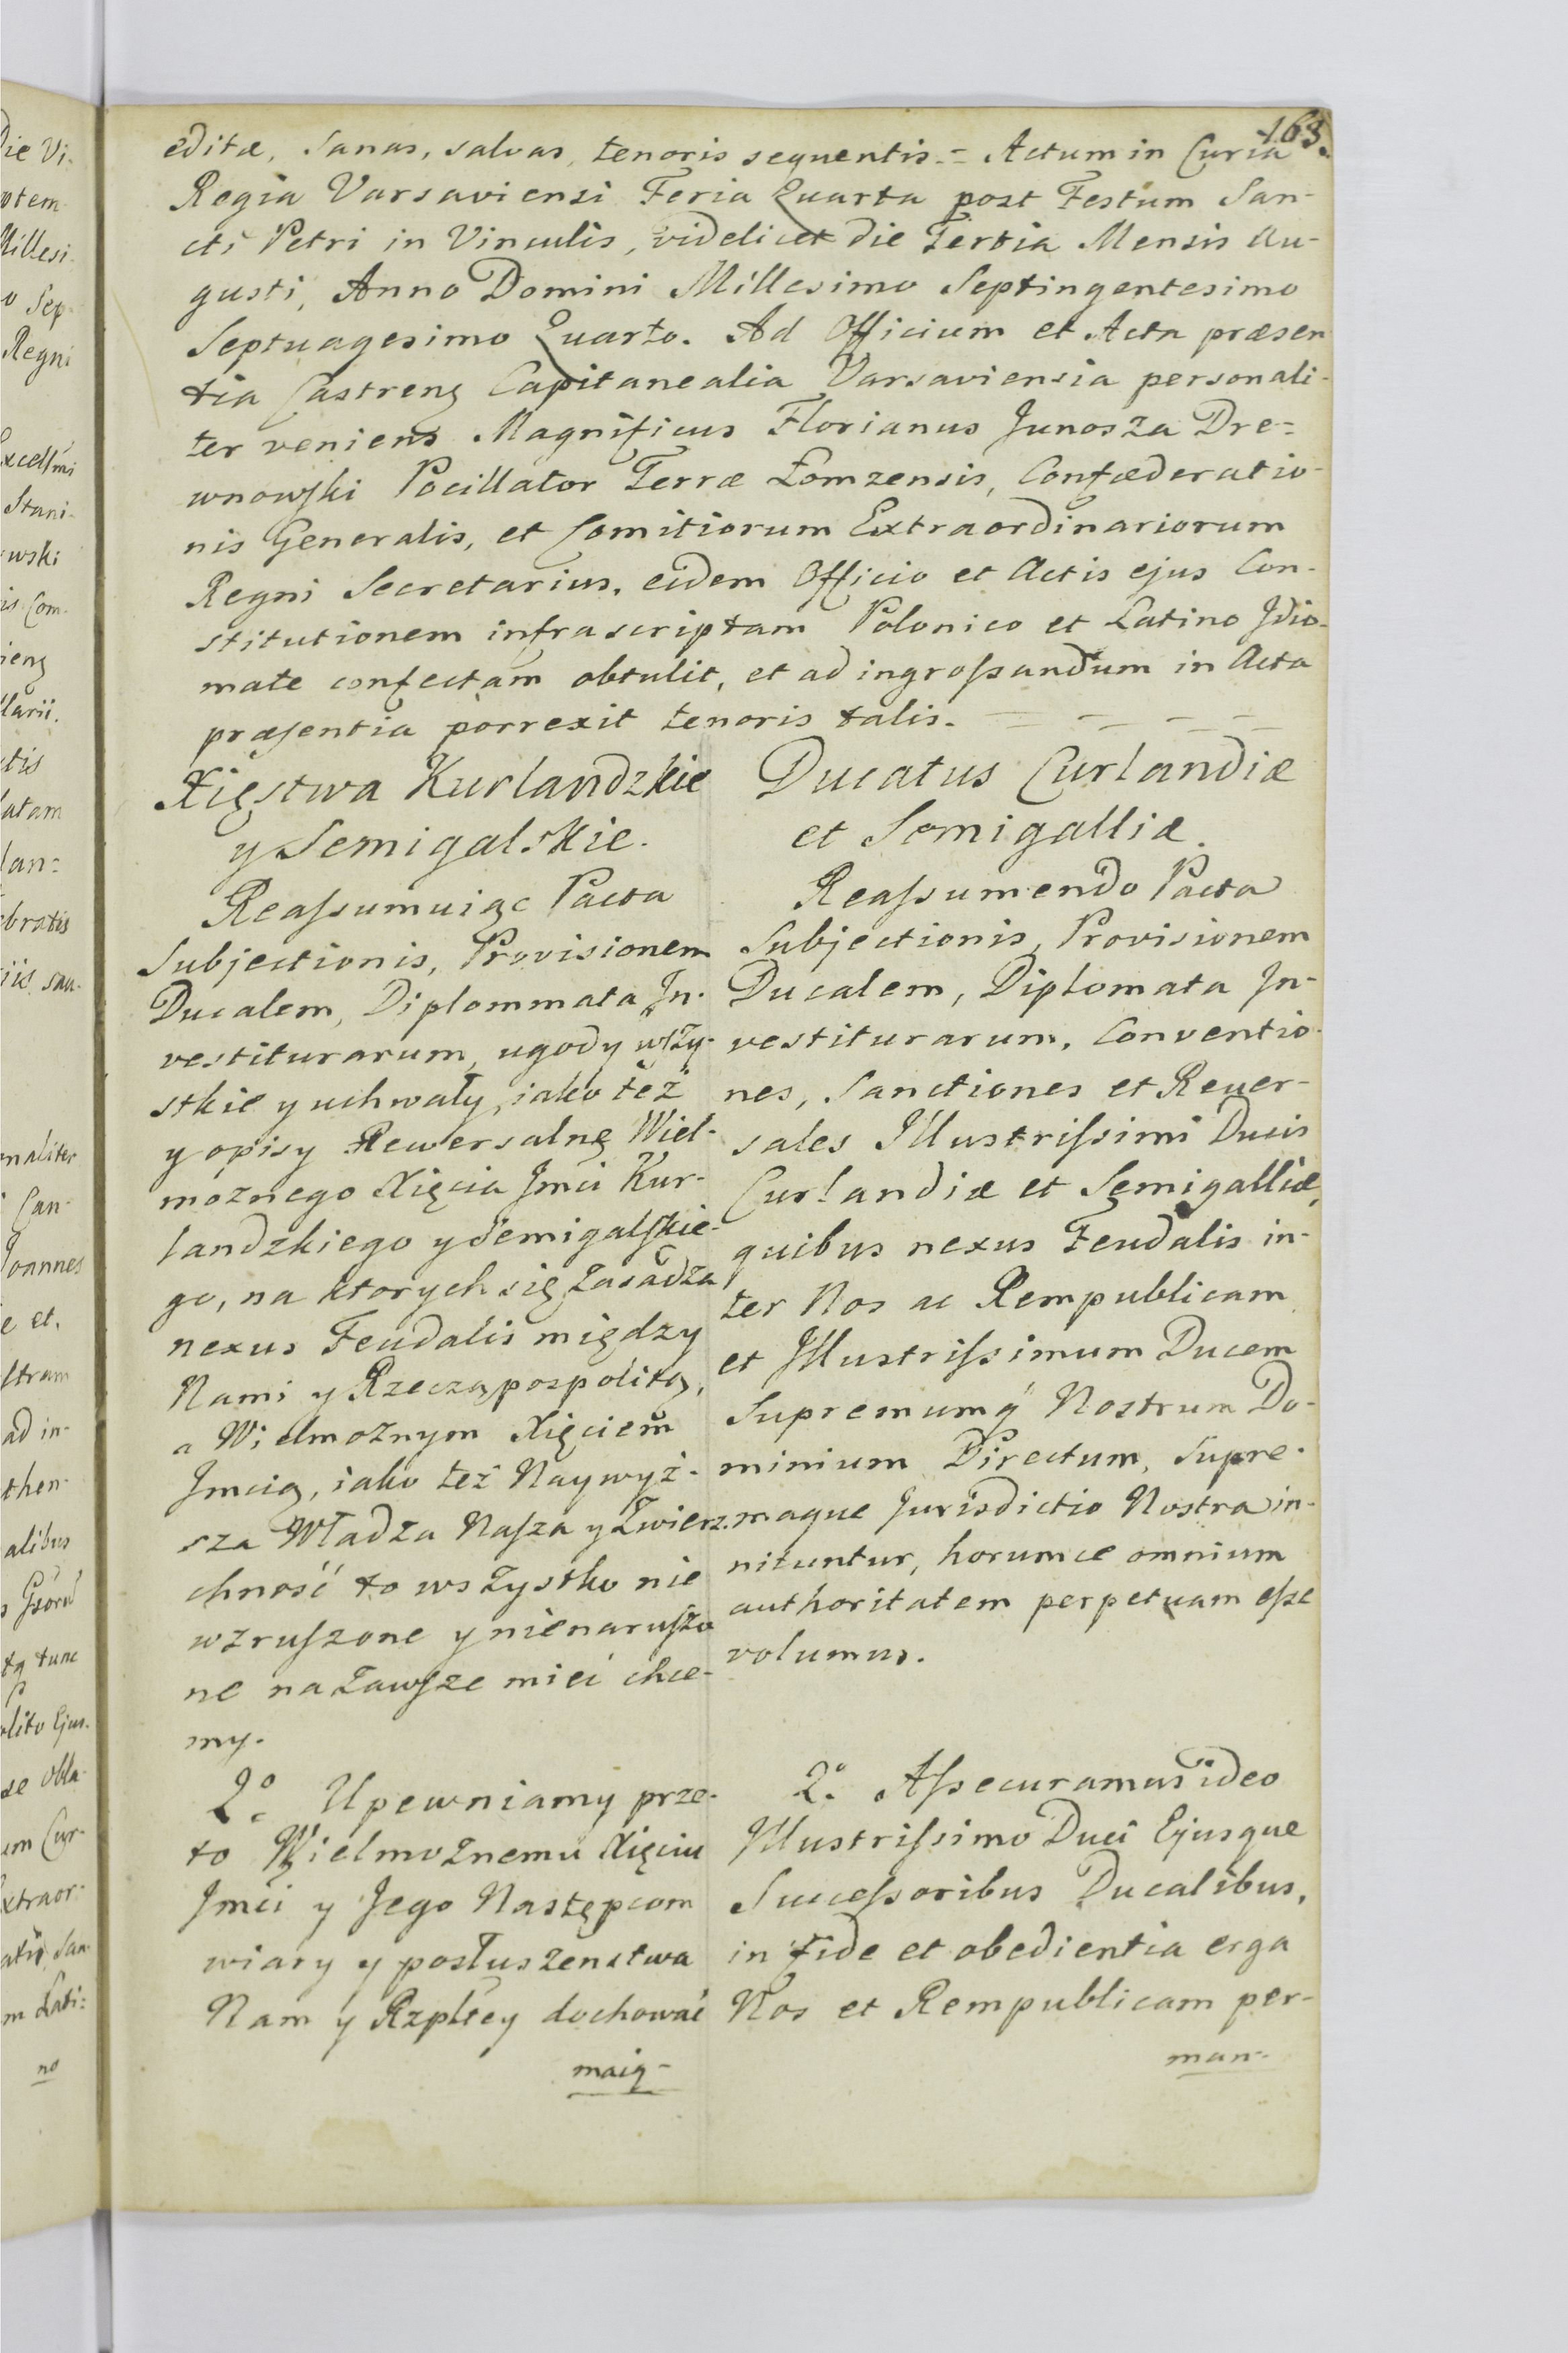 163.
editæ, sanas, salvas, tenoris sequentis.= Actum in Curia
Regia Varsaviensi Feria Quarta post Festum San-
cti Petri in Vinculis, videlicet die Tertia Mensis Au-
gusti, Anno Domini Millesimo Septingentesimo
Septuagesimo Quarto. Ad Officium et Acta præsen
tia Castreng Capitanealia Varsaviensia personali-
ter veniens Magnificus Florianus Junosza Dre=
wnowski Pocillator Terræ Łomzensis, Confæderatio-
nis Generalis, et Comitiorum Extraordinariorum
Regni Secretarius, eidem Officio et Actis ejus Con-
stitutionem infrascriptam Polonico et Latino Jdio-
mate confectam obtulit, et ad ingrossandum in Acta
præsentia porrexit tenoris talis.
Xięstwa Kurlandzkie
y Semigalskie.
Reassumuiąc Pacta
Subjectionis, Provisionem
Ducalem, Diplommata Jn-
vestiturarum, ugody wszy-
stkie y uchwały, iako też
y opisy Rewersalnę Wiel-
możnego Xięcia Jmci Kur-
landzkiego y Semigalskie-
go, na ktorych się zasadza
nexus Feudalis między
Nami y Rzecząpospolitą,
a Wielmożnym Xięciem
Jmcią, iako też Naywyż-
sza Władza Nasza y Zwierz-
chność to wszystko nie
wzruszone y nienaruszo
ne na zawsze mieć chce-
my.
2º. Upewniamy prze-
to Wielmożnemu Xięciu
Jmci y Jego Następcom
wiary y posłuszenstwa
Nam y Rzpltey dochować
maią-
Ducatus Curlandiæ
et Semigalliæ.
Reassumendo Pacta
Subjectionis, Provisionem
Ducalem, Diplomata Jn-
vestiturarum, Conventio-
nes, Sanctiones et Rever-
sales Jllustrissimi Ducis
Curlandiæ et Semigalliæ,
quibus nexus Feudalis in-
ter Nos ac Rempublicam
et Jllustrissimum Ducem
Supremumq̃ Nostrum Do-
minium Directum, Supre-
maque Jurisdictio Nostra in-
nituntur, horumce omnium
authoritatem perpetuam esse
volumus.
2º. Assecuramus ideo
Jllustrissimo Duci Ejusque
Successoribus Ducalibus,
in Fide et obedientia erga
Nos et Rempublicam per-
man-